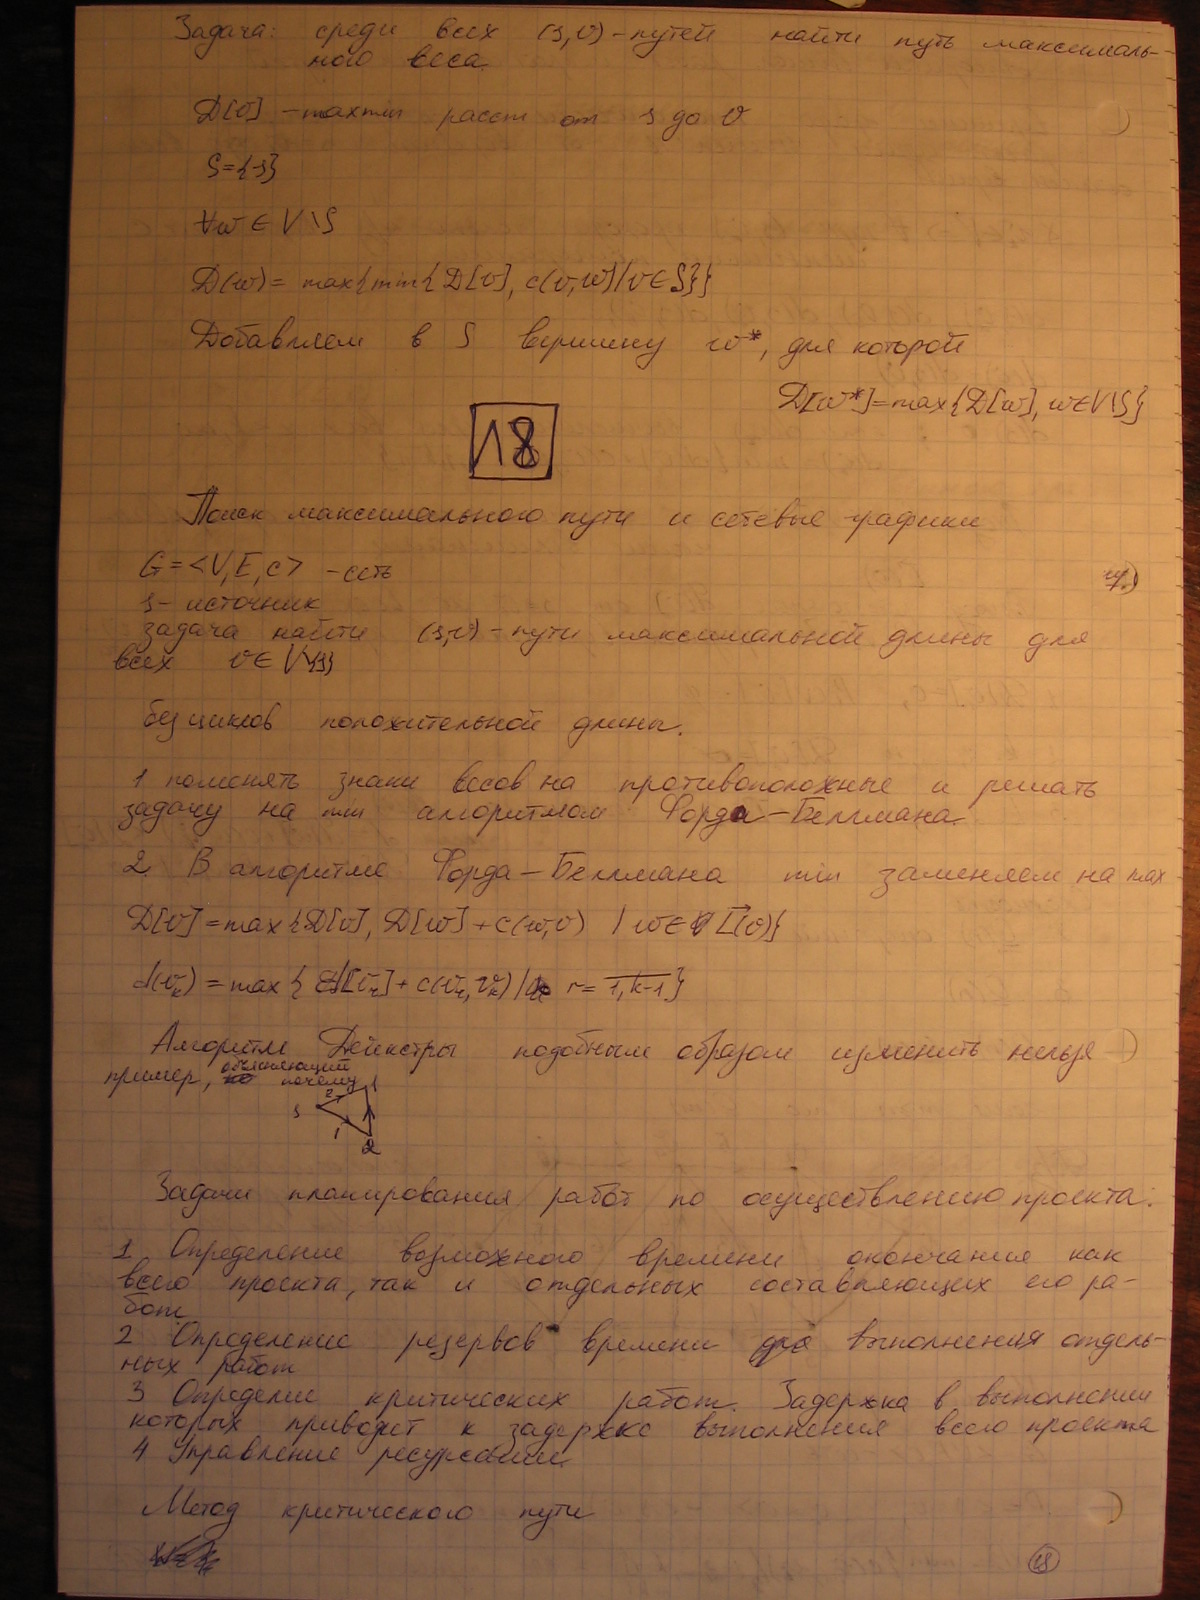 Задача: среди всех (s,v)-путей найти путь максималь-
ного веса.
D[v] - maxmin расст от s до v
S={s}
∀w ∈ V\S
D(w)= max{min{D[v], c(v,w)|v∈S}}
Добавляем в S вершину w*, для которой
D[w*]=max{D[w], w∈V\S}
18
Поиск максимального пути и сетевые графики
G=<V,E,c> -сеть
s- источник
задача найти (s,v)-пути максимальной длины для
всех v∈V\{s}
без циклов положительной длины.
1 поменять знаки весов на противоположные и решать
задачу на min алгоритмом Форда-Беллмана.
2. В алгоритме Форда-Беллмана min заменяем на max
D[v]=max{D[v], D[w]+c(w,v) | w∈ Γ(v)}
d(v_k) = max{ d[v_r]+c(v_r,v_k)| r= 1,k-1}
Алгоритм Дейкстры подобным образом изменить нельзя
пример, объясняющий почему
s 2 1
1 2
Задачи планирования работ по осуществлению проекта:
1 Определение возможного времени окончания как
всего проекта, так и отдельных составляющих его ра-
бот
2 Определение резервов времени для выполнения отдель-
ных работ
3 Определие критических работ. Задержка в выполнении
которых приводит к задержке выполнения всего проекта
4 Управление ресурсами.
Метод критического пути
18